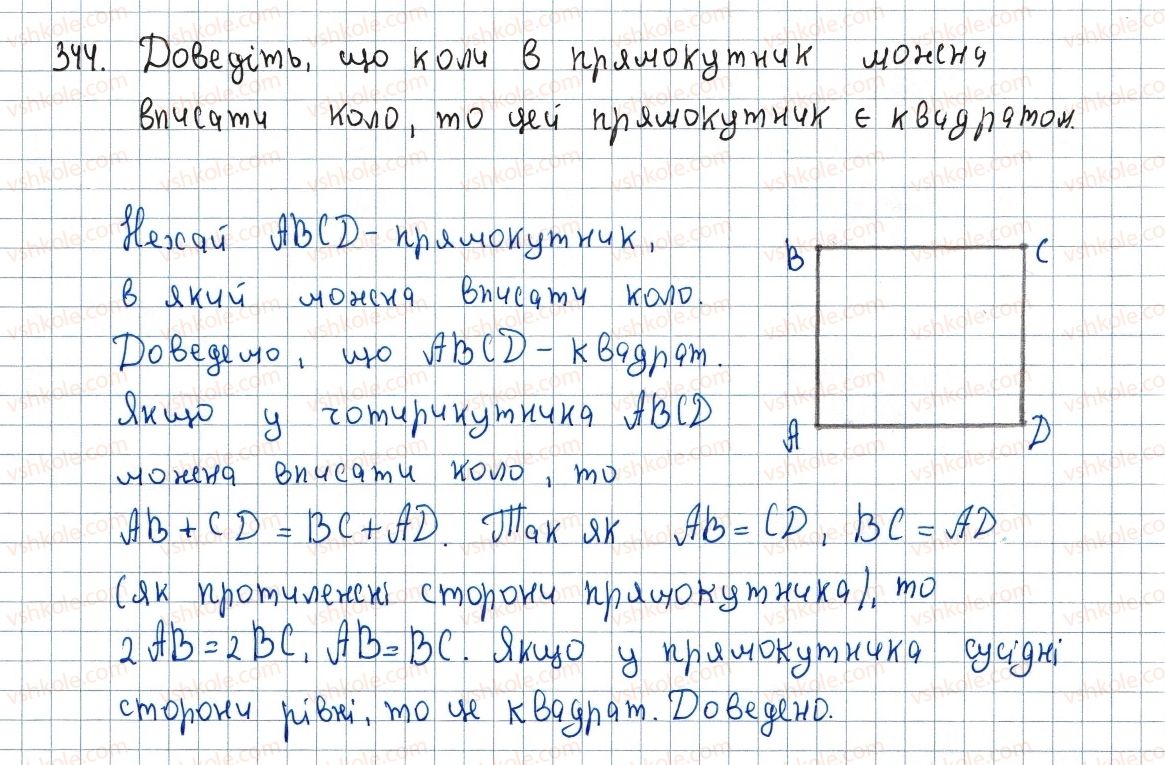 344. Доведіть, що коли в прямокутник можна
вписати коло, то цей прямокутник є квадратом.
Нехай ABCD - прямокутник,
в який можна вписати коло.
Доведемо, що ABCD - квадрат.
Якщо у чотирикутника ABCD
можна вписати коло, то
AB + CD = BC + AD. Так як AB = CD, BC = AD
(як протилежні сторони прямокутника), то
2AB = 2BC, AB = BC. Якщо у прямокутника сусідні
сторони рівні, то це квадрат. Доведено.
B C
A D
vshkole.com